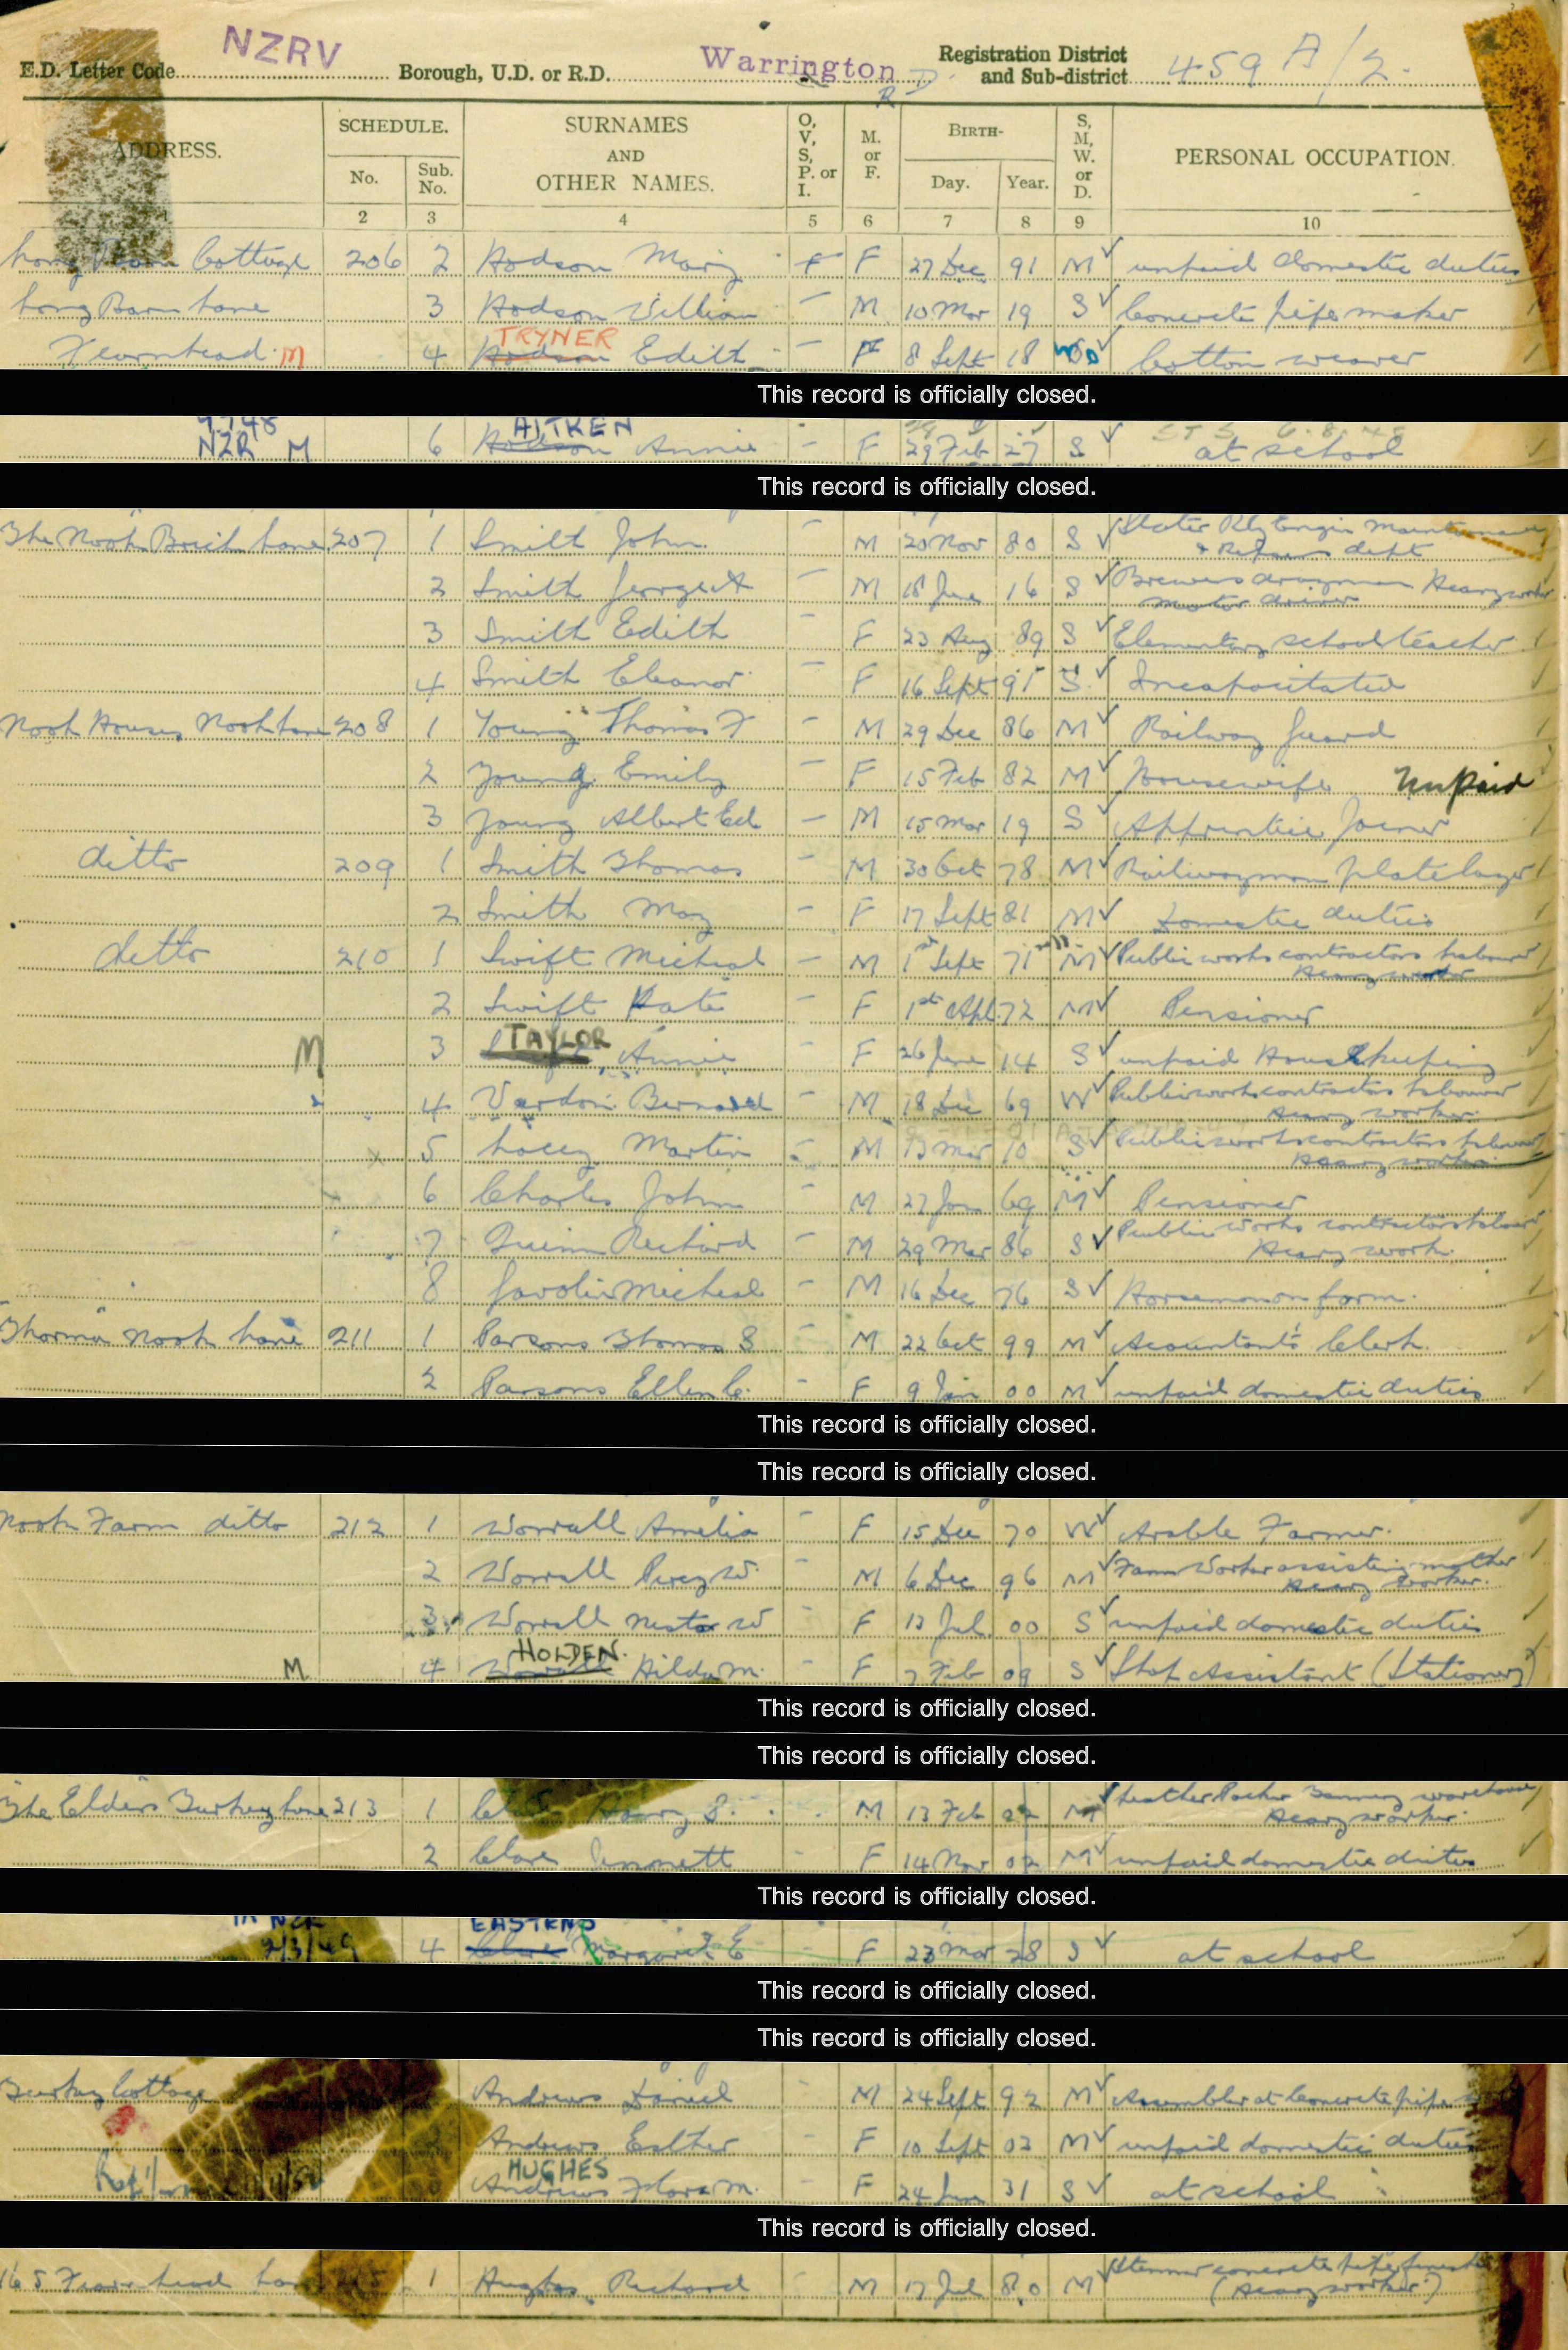 NZRV
E.D. Letter Code Borough, U.D. or R.D. Warrington R D Registration District and Sub-district 459 A/2.
ADDRESS. SCHEDULE. No. Sub. No. SURNAMES AND OTHER NAMES. O, V, S, P. or I. M. or F. BIRTH- Day. Year. S, M, W. or D. PERSONAL OCCUPATION.
1 2 3 4 5 6 7 8 9 10
Cottage 206 2 Hodson Mary F 27 Dec 91 M unpaid domestic duties
Long Barn Lane 3 Hodson William - M 10 Mar 19 S Concrete pipe maker
TRYNER
Fearnhead M 4 Hodson Edith - F 8 Sept 18 Cotton weaver
This record is officially closed.
AITKEN
NZR M 6 Hodson Annie - F 29 Feb 27 S at school
This record is officially closed.
The Nook Birch Lane 207 1 Smith John - M 20 Nov 80 S
& Repairs dept
2 Smith George A - M 18 June 16 S Brewers drayman Heavy worker
motor driver
3 Smith Edith - F 23 Aug 89 S Elementary school teacher
4 Smith Eleanor - F 16 Sept 91 S Incapacitated
Nook Houses Nook Lane 208 1 Young Thomas F - M 29 Dec 86 M Railway Guard
2 Young Emily - F 15 Feb 82 M Housewife unpaid
3 Young Albert Ed - M 15 Mar 19 S Apprentice Joiner
ditto 209 1 Smith Thomas - M 30 Oct 78 M Railwayman platelayer
2 Smith May - F 17 Sept 81 M Domestic duties
ditto 210 1 Swift Micheal - M 1st Sept 71 M Public works contractors labourer
Heavy worker
2 Swift Kate - F 1st Apl 72 M Pensioner
TAYLOR
M 3 Annie - F 26 June 14 S unpaid Housekeeping
4 Vardon Bernard - M 18 Dec 69 W Public works contractors labourer
Heavy worker
5 Lacey Martin - M 13 Mar 10 S Public works contractors labourer
Heavy worker
6 Charles John - M 27 Jan 69 M Pensioner
7 Quinn Richard - M 29 Mar 86 S Public works contractors labour
Heavy work.
8 Micheal - M 16 Dec 76 S Horseman on farm.
Nook Lane 211 1 Parsons Thomas S - M 22 Oct 99 M Acountants Clerk.
2 Parsons Ellen C. - F 9 Jan 00 M unpaid domestic duties
This record is officially closed.
This record is officially closed.
Nook Farm ditto 212 1 Worrall Amelia - F 15 Dec 70 W Arable Farmer.
2 Worrall Percy W. - M 6 Dec 96 M Farm Worker assisting mother
Heavy worker.
3 Worrall W - F 13 Jul 00 S unpaid domestic duties
HOLDEN.
M 4 Worrall Hilda M. - F 7 Feb 09 S Shop Assistant (Stationery)
This record is officially closed.
This record is officially closed.
The Elders Turkey Lane 213 1 Harry S. M 13 Feb M Leather Packer Tannery warehouse
Heavy worker.
2 Clare Annett - F 14 Nov 02 M unpaid domestic duties
This record is officially closed.
2/3/49 4 Clare Margaret E - F 23 Mar 28 S at school
This record is officially closed.
This record is officially closed.
Turkey Cottage Andrews Daniel - M 24 Sept 92 M Assembler at Concrete pipe
Andrews Esther - F 10 Sept 02 M unpaid domestic duties
HUGHES
Andrews Flora M. - F 24 Jun 31 S at school
This record is officially closed.
1 Hughes Richard - M 17 Jul 80 M concrete pipe
(Heavy worker)